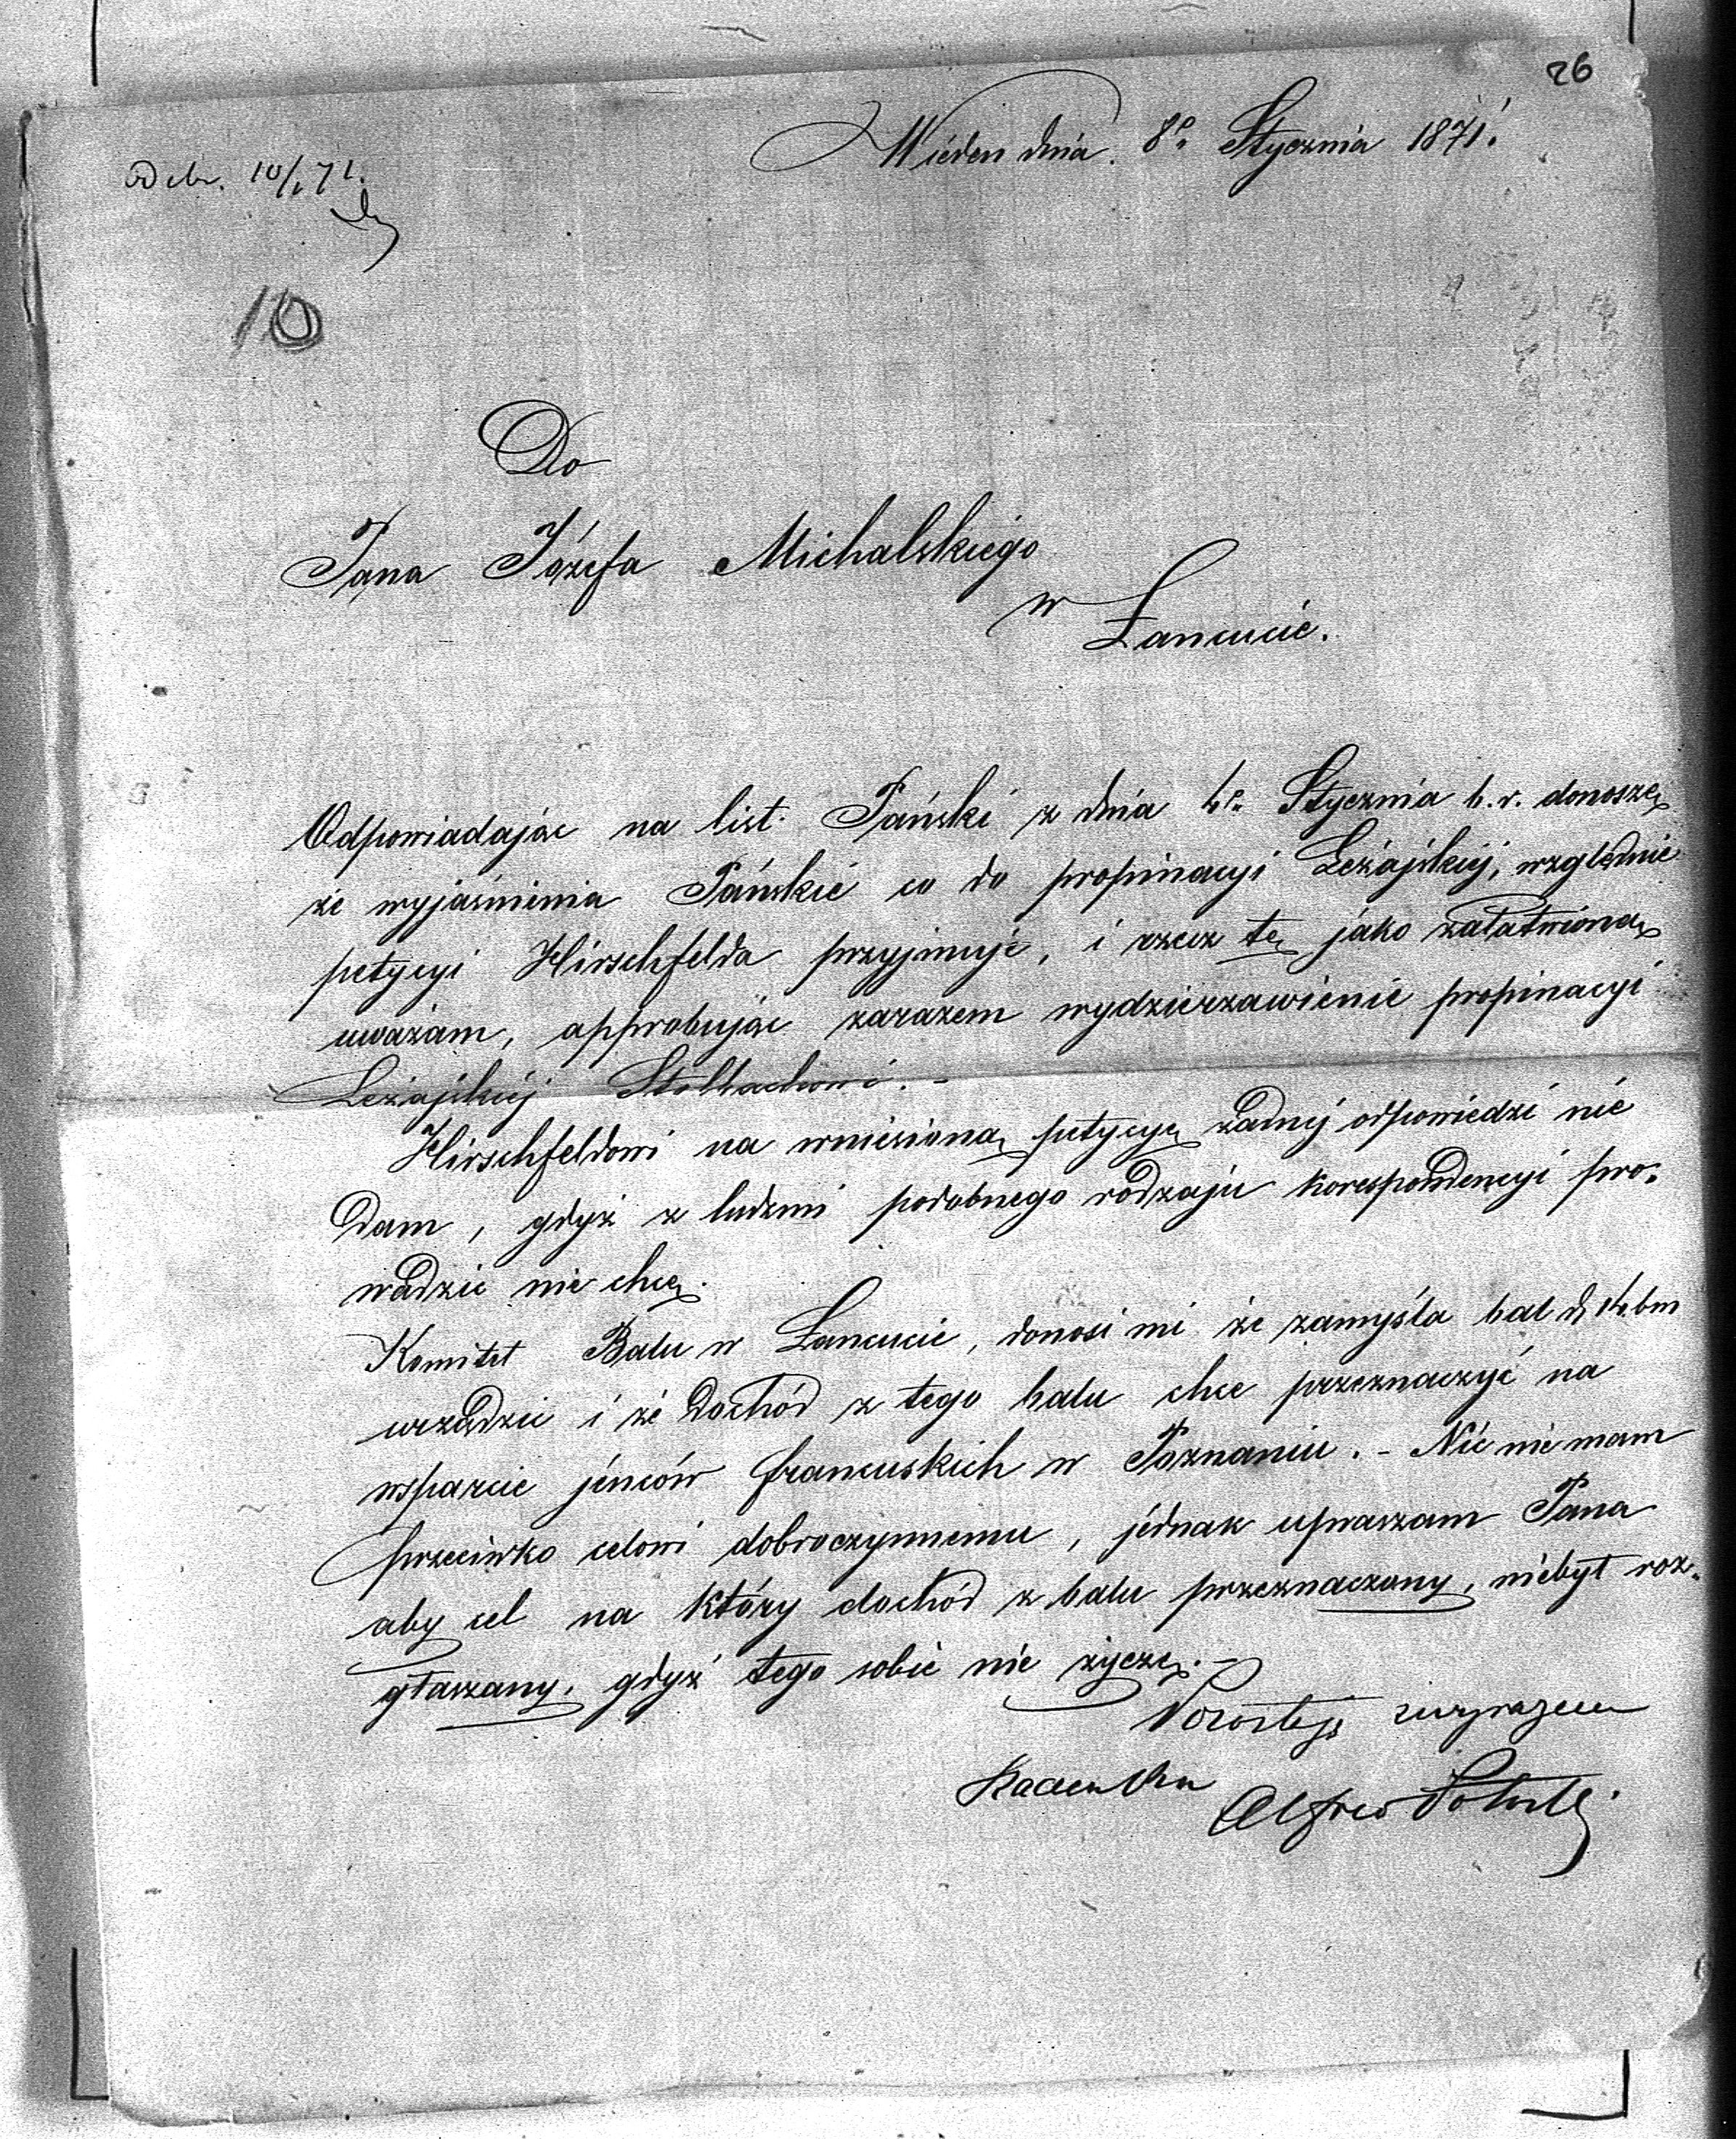 26
Wiedeń dnia 8º Stycznia 1871.
Odebr. 10/1 71.
10
Do
Pana Józefa Michalskiego
w
Łancucie.
Odpowiadając na list Pański z dnia 4º Stycznia b.r. donoszę
że wyjaśnienia Pańskie co do propinacyi Leżajskiéj, względnie
petycyi Hirschfelda przyjmuję, i rzecz tę jako załatwioną
uważam, approbując zarazem wydzierzawienie propinacyi
Leżajskiéj
Hirschfeldowi na wniesioną petycyę żadnéj odpowiedzi nie
dam, gdyż z ludzmi podobnego rodzaju korespondencyi pro-
wadzić nie chcę.
Komitet Balu w Łancucie, donosi mi że zamyśla bal d. 14. bm
urządzić i że dochód z tego balu chce przeznaczyć na
wsparcie jeńców francuskich w Poznaniu. - Nic nie mam
przeciwko celowi dobroczynnemu, jednak upraszam Pana
aby cel na który dochód z balu przeznaczony, niebył roz-
głaszany, gdyż tego sobie nie życzę. -
Pozostaję z wyrazem
szacunku Alfred Potocki